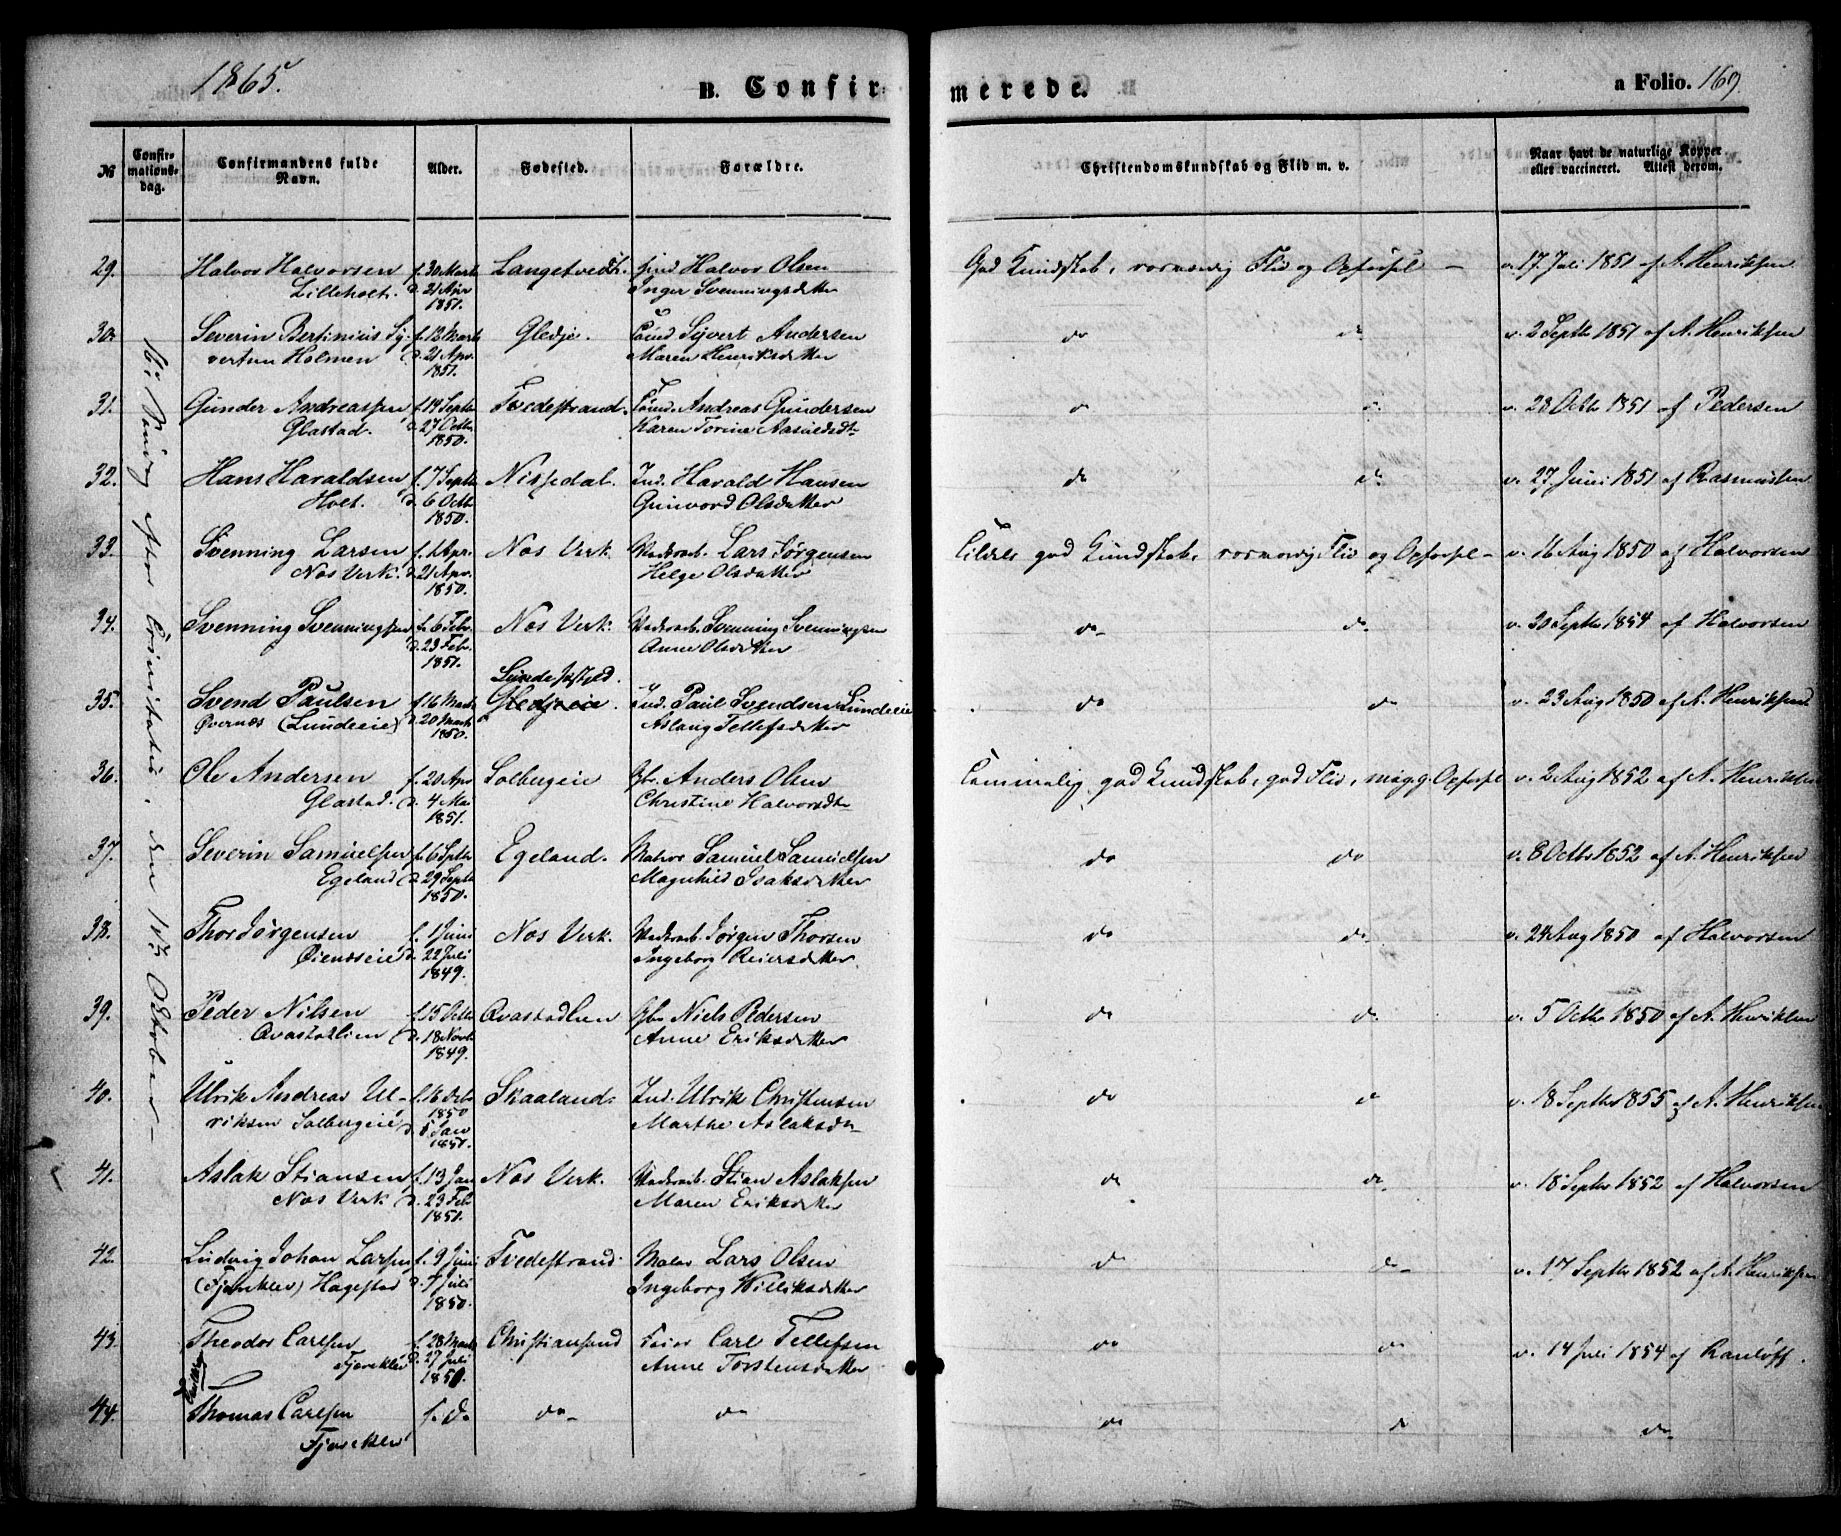 1865.
B. Confirmerede.
a Folio. 169.
№
Confirmationsdag.
Confirmandens fulde Navn.
Alder.
Fødested.
Forældre.
Christendomskundskab og Flid m. v.
Naar havt de naturlige Kopper eller vaccineret. Attest derom.
16. Søndag efter Trinitatis. den 1ste October
29. Halvor Halvorsen f. 30 Marts Langetvedt. Halvor Olsen God Kundskab, Flid og Opførsel v. 17 Juli 1851 af A. Henriksen
Lilleholt. d. 21 Apr Inger Svenningsdatter
1851.
30. Severin Bertinius Sy- f. 13 Marts Gledje. Syvert Andersen do do v. 2 Septbr 1851 af A. Henriksen
vertsen Holmen d. 21 Apr. Maren Henriksdatter
1851.
31. Gunder Andreassen f. 14 Septb Tvedestrand. Andreas Gundersen do do v. 28 Octbr 1851 af Pedersen
Glastad. d. 27 Octbr Karen Torine Aasuldsdt
1850.
32. Hans Haraldsen f. 7 Septb Nissedal. Ind. Harald Hansen do do v. 27 Juni 1851 af Rasmussen
Holt. d. 6 Octb Gunvord Olsdatter
1850.
33. Svenning Larsen f. 1 Apr. Nes Verk. Lars Jørgensen Tildels god Kundskab, Flid og Opførsel v. 16 Aug 1850 af Halvorsen
Nes Verk. d. 21 Apr. Helge Olsdatter
1850.
34. Svenning Svenningsen f. 6 Febr. Nes Verk. Svenning Svenningsen do do v. 30 Septbr 1854 af Halvorsen
d. 23 Febr. Anne Olsdatter
1851.
35. Svend Paulsen f. 16 Marts Gledjeeie. Ind. Paul Svendsen Lundeeie do do v. 23 Aug 1850 af A. Henriksen
(Lundeeie) d. 20 Marts Aslaug Tellefsdatter
1850.
36. Ole Andersen f. 20 Apr Solbergeie Gbr. Anders Olsen Temmelig god Kundskab, god Flid, Opførsel v. 2 Aug 1852 af A. Henriksen
Glastad. d. 4 Mai Christine Halvorsdt
1851.
37. Severin Samuelsen f. 6 Septbr Egeland. Matros Samuel Samuelsen do do v. 8 Octbr 1852 af A. Henriksen
Egeland d. 29 Septb Magnhild Isaksdatter
1850.
38. Thor Jørgensen f. 1 Juni Nes Verk. Jørgen Thorsen do do v. 24 Aug 1850 af Halvorsen
Øieneseie d. 22 Juli Ingeborg Reiersdatter
1849.
39. Peder Nilsen f. 15 Octbr Qvastadlien Gbr Niels Pedersen do do v. 5 Octbr 1850 af A. Henriksen
Qvastadlien d. 18 Novb Anne Eriksdatter
1849.
40. Ulrik Andreas Ul- f. 16 Skaaland. Ind. Ulrik Christensen do do v. 18 Septbr 1855 af A. Henriksen
riksen Solbergeie 1850 Marthe Aslaksdt
d. 5 Jan
1851.
41. Aslak Stiansen f. 13 Jan Nes Verk. Stian Aslaksen do do v. 18 Septbr 1852 af Halvorsen
Nes Verk d. 23 Feb Maren Eriksdatter
1851.
42. Ludvig Johan Larsen f. 9 Juni Tvedestrand Maler Lars Olsen do do v. 17 Septbr 1852 af A. Henriksen
Hagestad d. 7 Juli Ingeborg Williksdatter
1850.
43. Theodor Carlsen f. 28 Marts Christiansund Feier Carl Tellefsen do do v. 14 Juli 1854 af
Fjereklev d. 27 Juli Anne Torstensdatter
1850.
44. Thomas Carlsen f. do do do do do do
Fjereklev